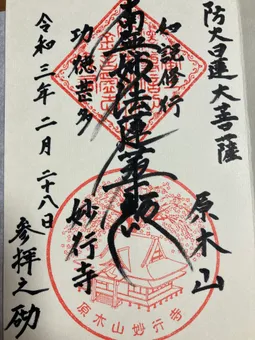 防火日蓮大菩薩
原木山
南無妙法蓮華経
如説修行
功徳甚多
妙行寺
令和三年二月二十八日
参拝之砌
原木山妙行寺